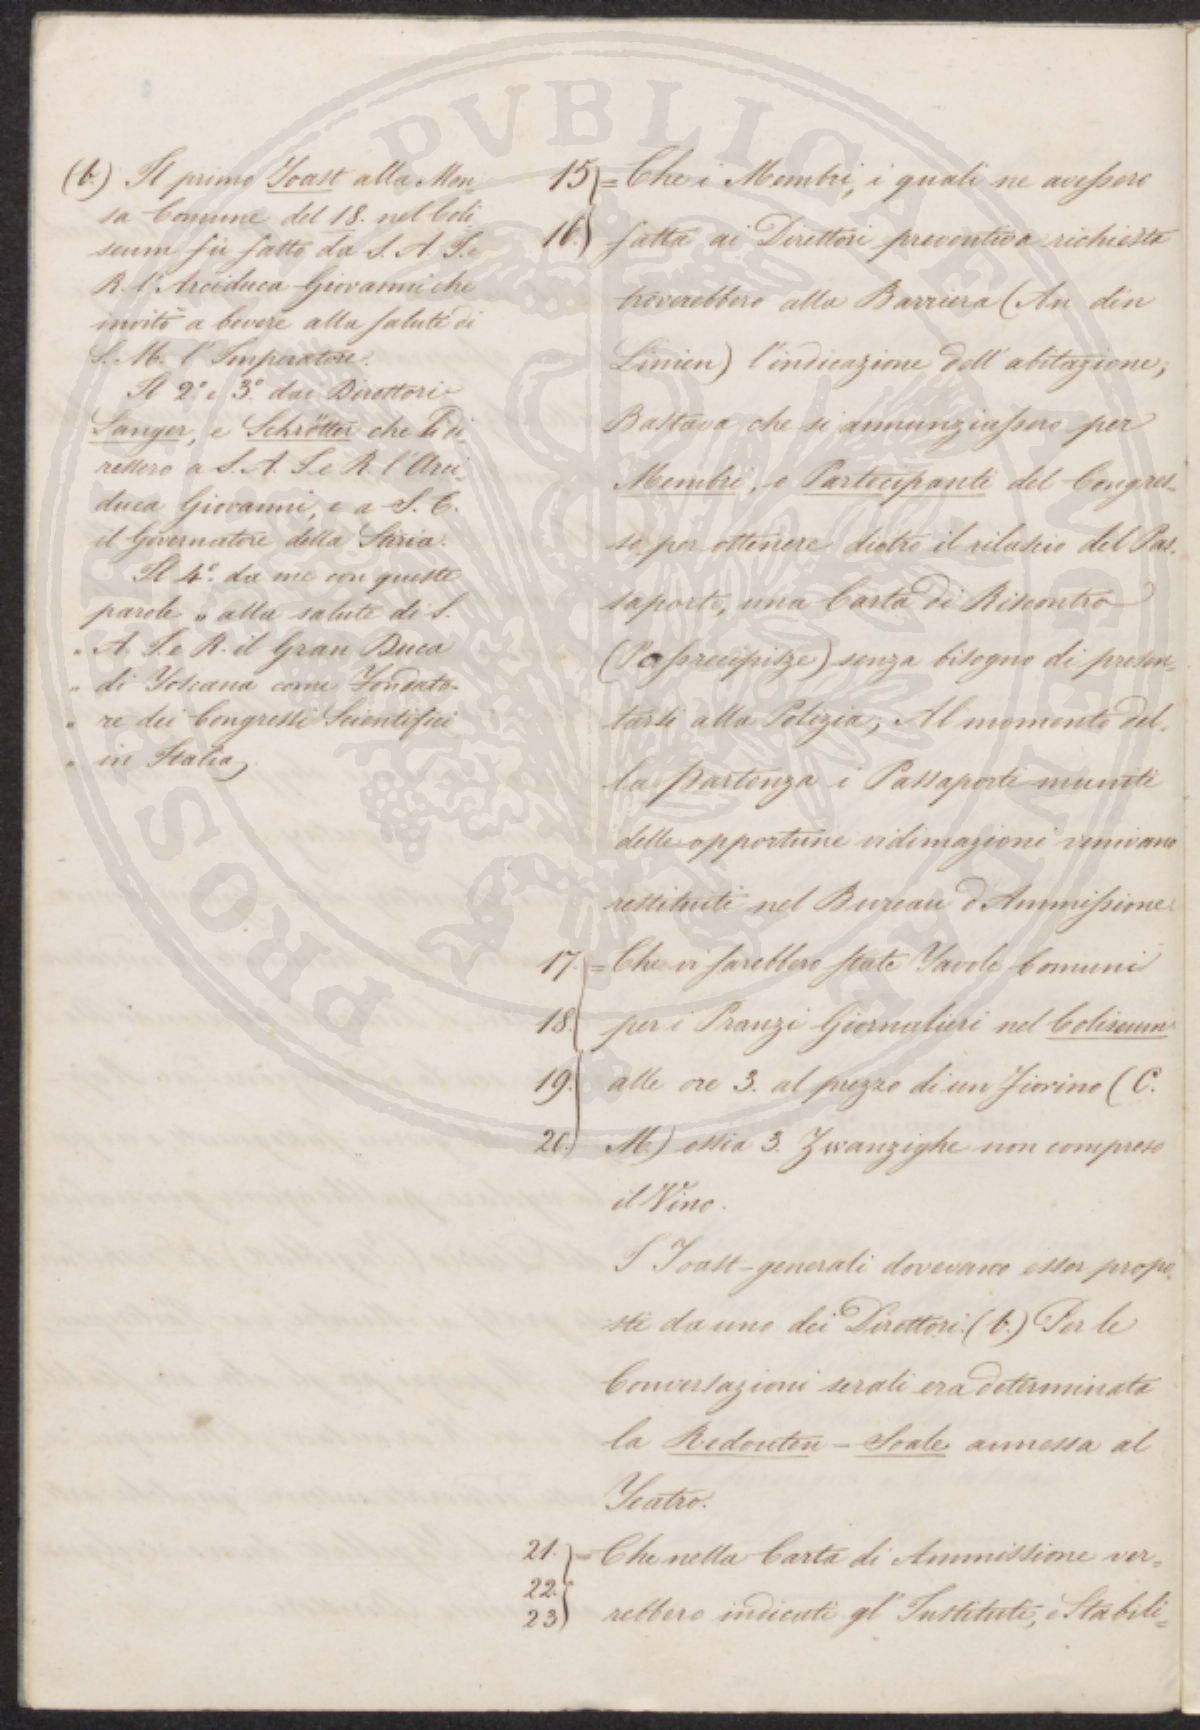 (b.) Il primo Toast alla Men
sa Comune del 18. nel Coli
seum fù fatto da S. A. I. e
R. l'Arciduca Giovanni che
invitò a bevere alla salute di
S. M. l'Imperatore.
Il 2.° e 3.° dai Direttori
Langer, e Schrötter che li di
ressero a S. A. I. e R. l'Arci
duca Giovanni, e a S. E.
il Governatore della Stiria.
Il 4.° da me con queste
parole „ alla salute di S.
„ A. I. e R. il Gran Duca
„ di Toscana come Fondato-
„ re dei Congressi Scientifici
„ in Italia„
15 = Che i Membri, i quali ne avessero
16.) fatta ai Direttori preventiva richiesta
troverebbero alla Barriera (An din
Linien) l'indicazione dell'abitazione;
Bastava che si annunziassero per
Membri, o Partecipanti del Congres=
so per ottenere dietro il rilascio del Pas.
saporto, una Carta di Riscontro
(Passrecipisze) senza bisogno di presen=
tarsi alla Polizia; Al momento del.
la partenza i Passaporti muniti
delle opportune vidimazioni venivano
restituiti nel Bureau d'Ammissione.
17. = Che vi sarebbero state Tavole Comuni
18. per i Pranzi Giornalieri nel Coliseum
19. alle ore 3. al prezzo di un Fiorino (C.
20.) M.) ossia 3. Zwanzighe non compreso
il Vino.
I Toast-generali dovevano esser propo.
sti da uno dei Direttori. (b.) Per le
Conversazioni serali era determinata
la Redouten - Soale annessa al
Teatro.
21. = Che nella Carta di Ammissione ver=
22.
23) rebbero indicati gl'Instituti, e Stabili=
PROSPERITATI PVBLICAE AVGENDAE